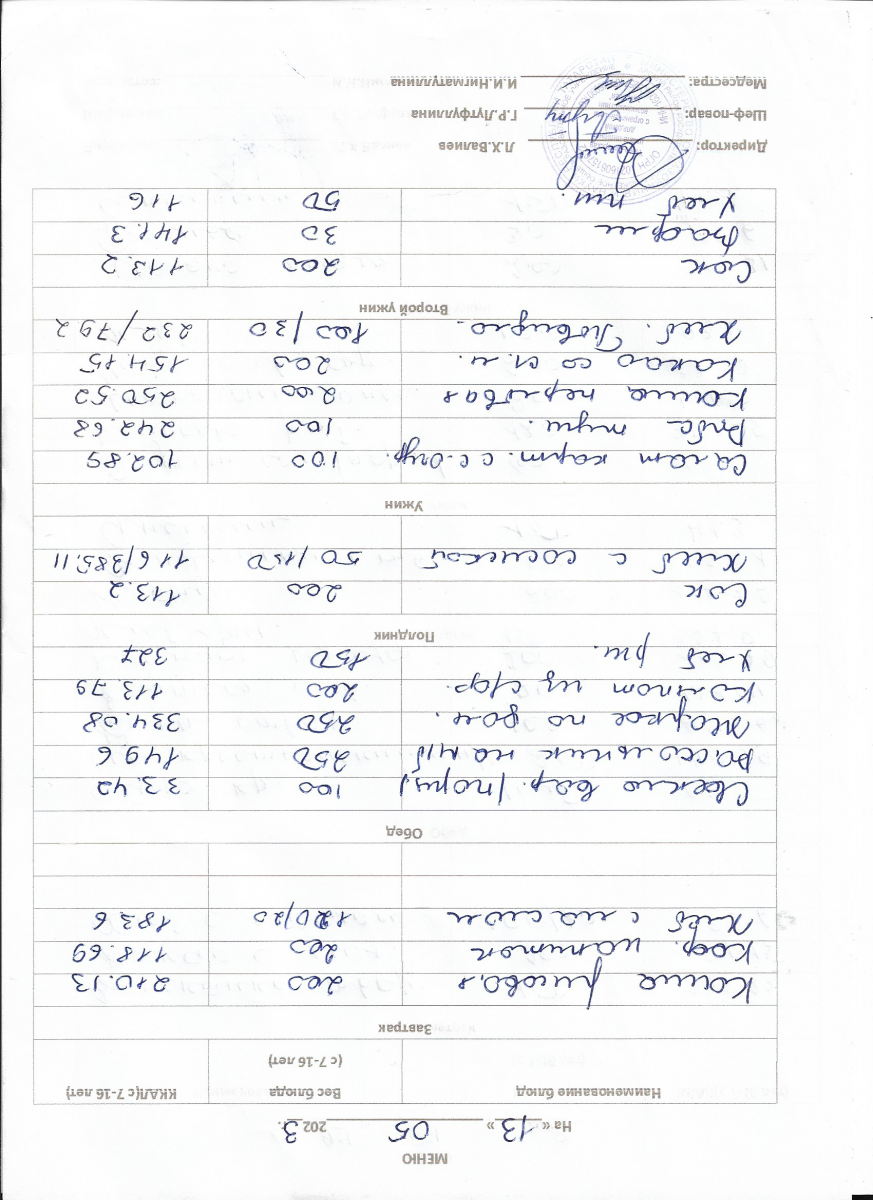 МЕНЮ
На « 13 » 05 2023.
Наименование блюд Вес блюда (с 7-16 лет) ККАЛ(с 7-16 лет)
Завтрак
Каша рисовая 200 210.13
Коф. напиток 200 118.69
Хлеб с маслом 120/20 183.6
Обед
Свекла вар. (порц) 100 33.42
Рассольник на м/б 250 149.6
Жаркое по дом. 250 334.08
Компот из с/фр. 200 113.79
Хлеб рж. 150 327
Полдник
Сок 200 113.2
Хлеб с сосиской 50/150 116/385.11
Ужин
Салат карт. с с.огур. 100 102.89
Рыба туш. 100 242.68
Каша перловая 200 250.52
Какао со сг.м. 200 154.15
Хлеб. Повидло. 100/30 232/79.2
Второй ужин
Сок 200 113.2
Вафли 30 141.3
Хлеб пш. 50 116
Директор: Л.Х.Валиев
Шеф-повар: Г.Р.Лутфуллина
Медсестра: И.И.Нигматуллина